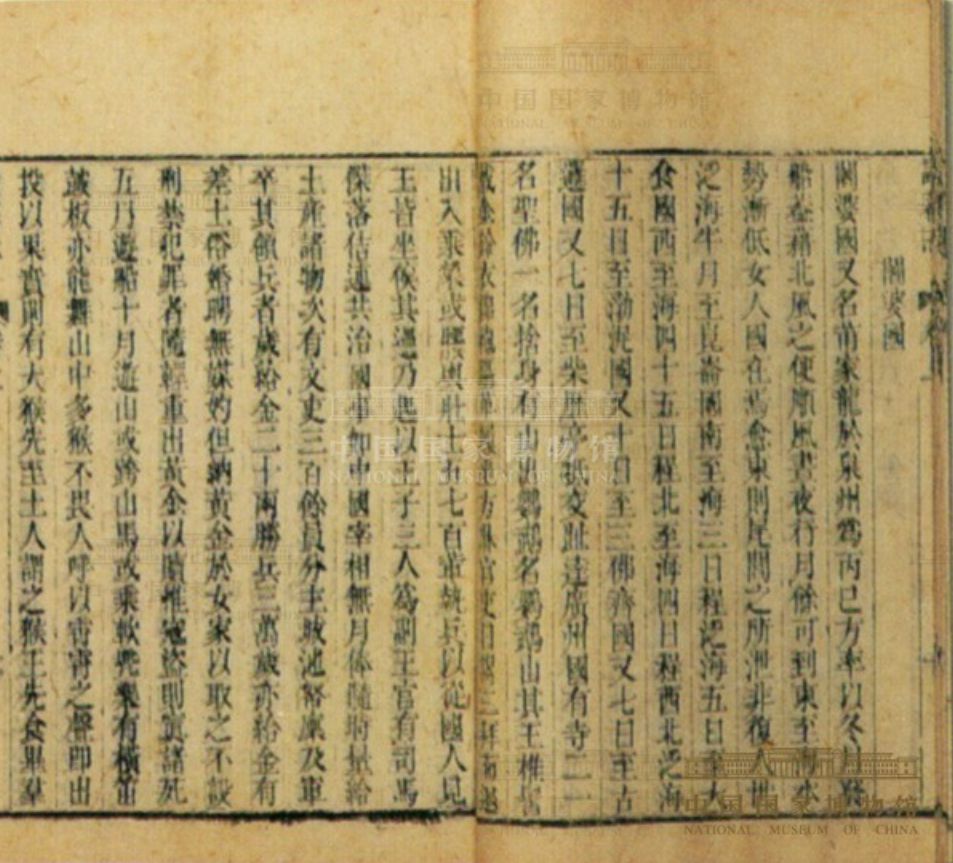 闍婆國
闍婆國又名莆家龍於泉州為丙巳方率以冬月發
船葢藉北風之便順風晝夜行月餘可到東至海水
勢漸低女人國在焉愈東則尾閭之所泄非復人世
泛海半月至崑崙國南至海三日程泛海五日至大
食國西至海四十五日程北至海四日程西北泛海
十五日至渤泥國又十日至三佛齊國又七日至古
邏國又七日至柴歷亭抵交趾達廣州國有寺二一
名聖佛一名捨身有山出鸚鵡名鸚鵡山其王椎髻
戴金鈴衣錦袍
出入乘象或腰輿壯士五七百軰執兵以從國人見
王皆坐俟其過乃起以王子三人為副王官有司馬
傑落佶連共治國事如中國宰相無月俸隨時量給
土產諸物次有文吏三百餘員分主城池帑廩及軍
卒其領兵者歲給金二十兩勝兵三萬歲亦給金有
差土俗婚聘無媒妁但納黃金於女家以取之不設
刑禁犯罪者隨輕重出黃金以贖惟寇盜則寘諸死
五月遊船十月遊山或跨山馬或乘軟兜樂有橫笛
鼓板亦能舞山中多猴不畏人呼以霄霄之聲即出
投以果實則有大猴先至土人謂之猴王先食畢羣
中国国家博物馆
NATIONAL MUSEUM OF CHINA
中国国家博物馆
NATIONAL MUSEUM OF CHINA
中国国家博物馆
NATIONAL MUSEUM OF CHINA